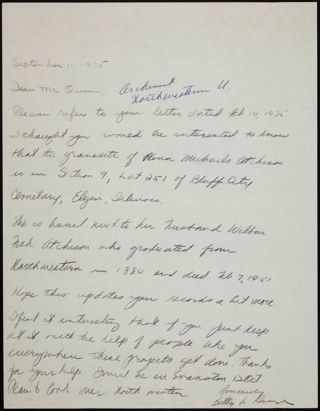 September 11, 1975
Dear Mr Quinn, Archivist
Northwestern U.
Please refer to your letter dated Feb 10, 1975
I thought you would be interested to know
that the gravesite of Rena Michaels Atchison
is in Section 9, Lot 251 of Bluff City
Cemetary, Elgin, Illinois.
She is buried next to her husband Wilbur
Fisk Atchison who graduated from
Northwestern in 1884 and died Feb 7, 1951
Hope this updates your records a bit more.
I find it interesting that if you just keep
at it with the help of people like you
everywhere these projects get done. Thanks
for your help. I will be in Evanston 12 Oct
Plan to look over Northwestern
Sincerely,
Betty L.